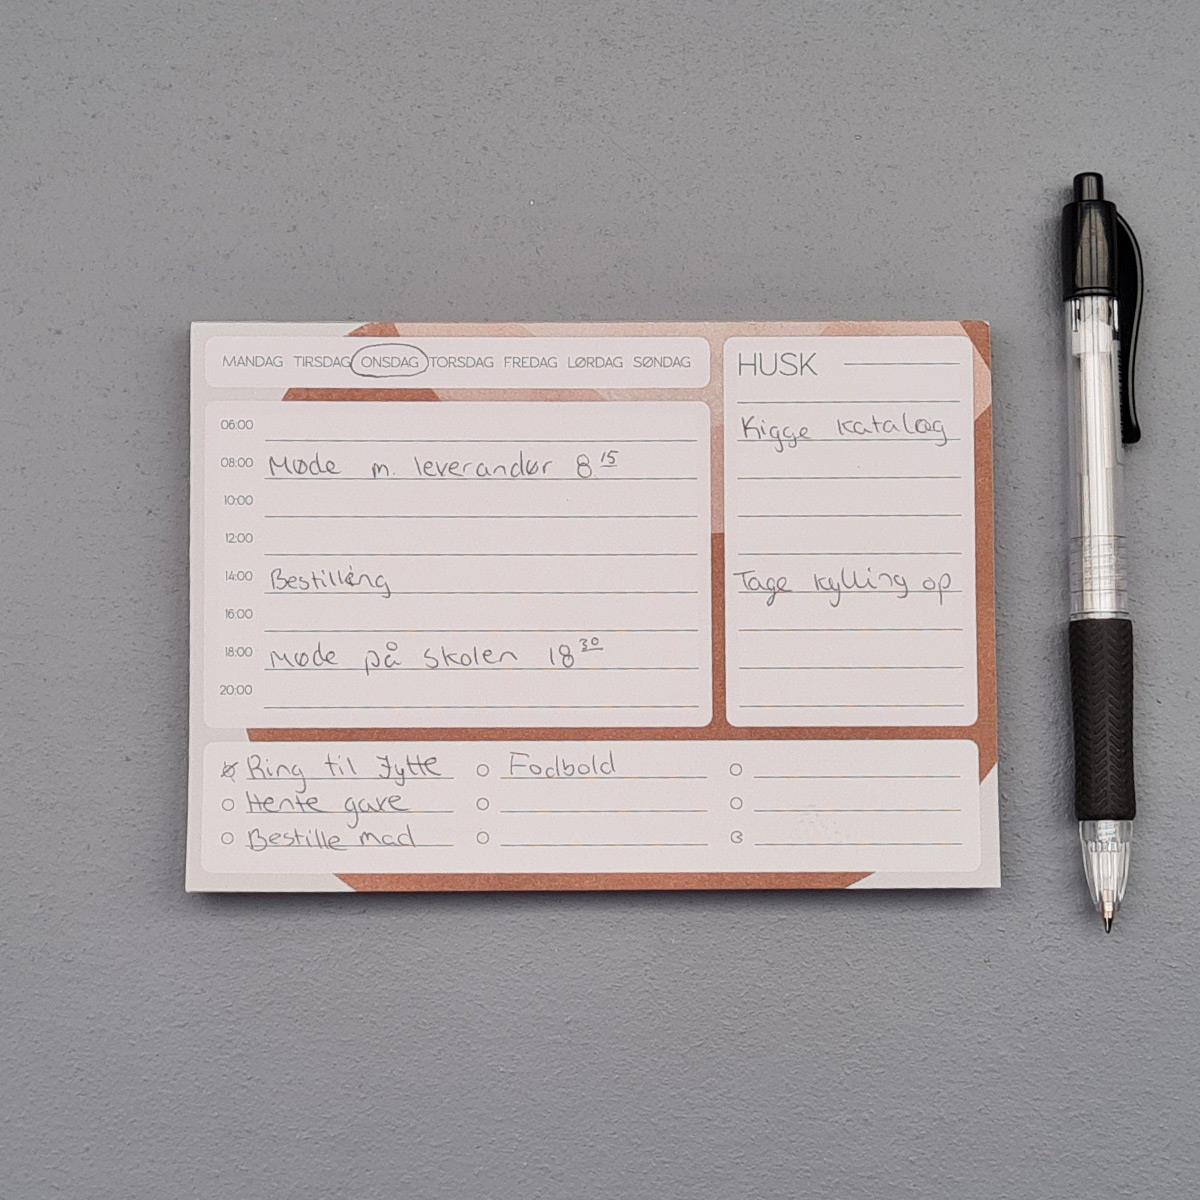 MANDAG TIRSDAG ONSDAG TORSDAG FREDAG LØRDAG SØNDAG
06:00
08:00 Møde m. leverandør 8 15
10:00
12:00
14:00 Bestilling
16:00
18:00 Møde på skolen 18 30
20:00
HUSK
Kigge katalog
Tage kylling op
Ring til Jytte
Hente gave
Bestille mad
Fodbold